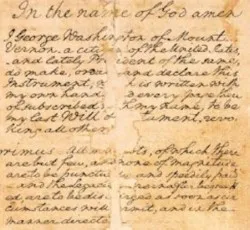 In the name of God amen
I George Washington of Mount
Vernon, a citizen of the United States,
and lately Pr sident of the same,
do make, or and declare this
Instrument, w h is written with
my own hand every page there
of subscribed h my name, to be
my last Will & tament, revo
king all other
rimus. All my ts, of which there
are but few, and none of magnitude
are to be punctu and speedily paid
and the legacies hereinafter bequeath
ed, are to be dis ged as soon as cir
cumstances will mit, and in the
manner directe